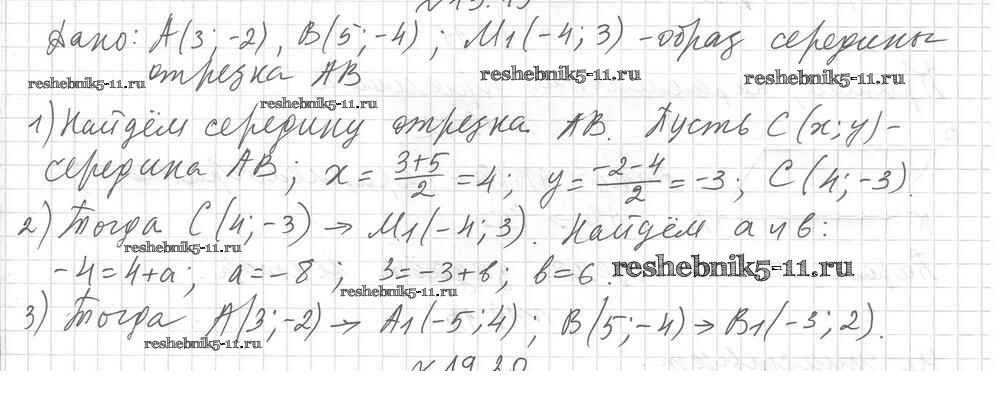 №19.19
Дано: A(3;-2), B(5;-4); M1(-4;3) - образ середины
reshebnik5-11.ru отрезка AB reshebnik5-11.ru reshebnik5-11.ru
reshebnik5-11.ru
1) Найдём середину отрезка AB. Пусть C(x;y) -
середина AB; x = (3+5)/2 = 4; y = (-2-4)/2 = -3; C(4;-3).
2) Тогда C(4;-3) → M1(-4;3). Найдём a и b:
reshebnik5-11.ru
-4=4+a; a=-8; 3=-3+b; b=6. reshebnik5-11.ru
reshebnik5-11.ru
3) Тогда A(3;-2) → A1(-5;4); B(5;-4) → B1(-3;2).
reshebnik5-11.ru
№19.20